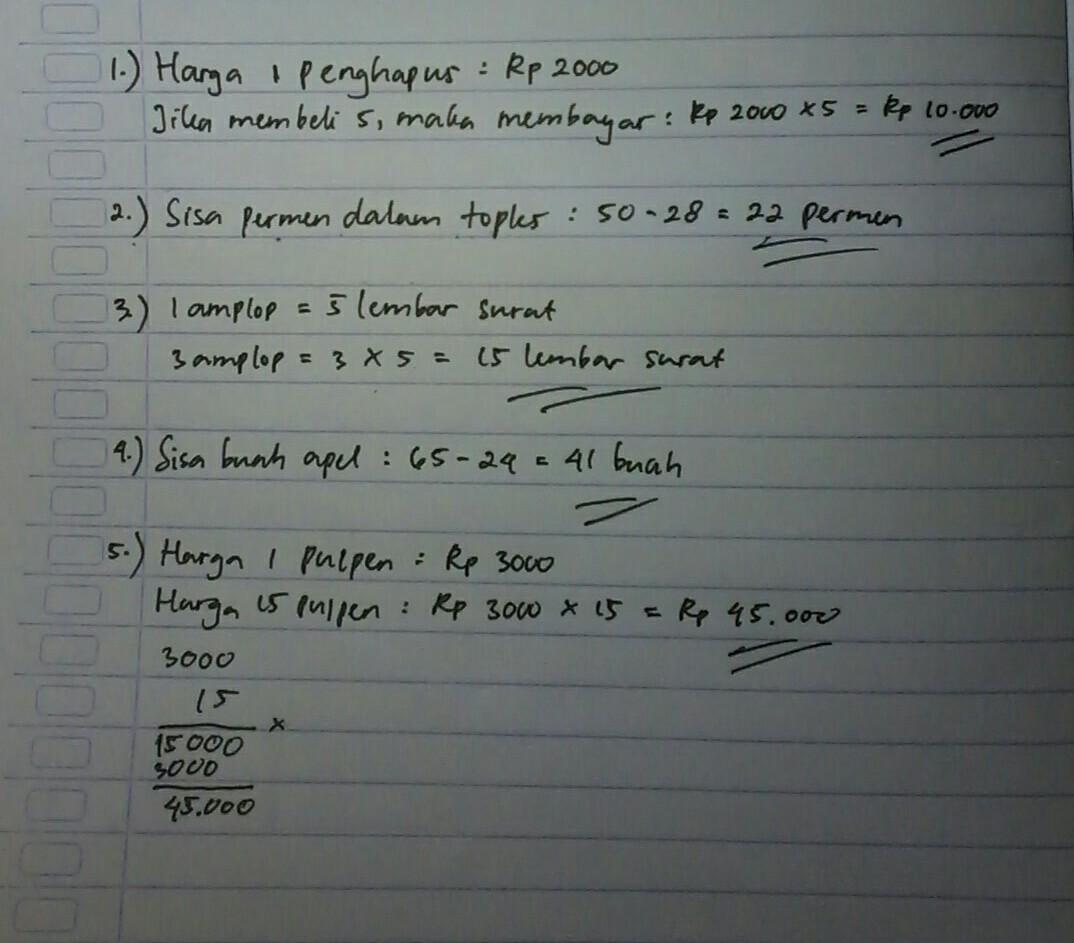 1.) Harga 1 penghapus : Rp 2000
Jika membeli 5, maka membayar : Rp 2000 x 5 = Rp 10.000
2.) Sisa permen dalam toples : 50 - 28 = 22 permen
3) 1 amplop = 5 lembar surat
3 amplop = 3 x 5 = 15 lembar surat
4.) Sisa buah apel : 65 - 24 = 41 buah
5.) Harga 1 pulpen : Rp 3000
Harga 15 pulpen : Rp 3000 x 15 = Rp 45.000
3000
15
x
15000
3000
45.000